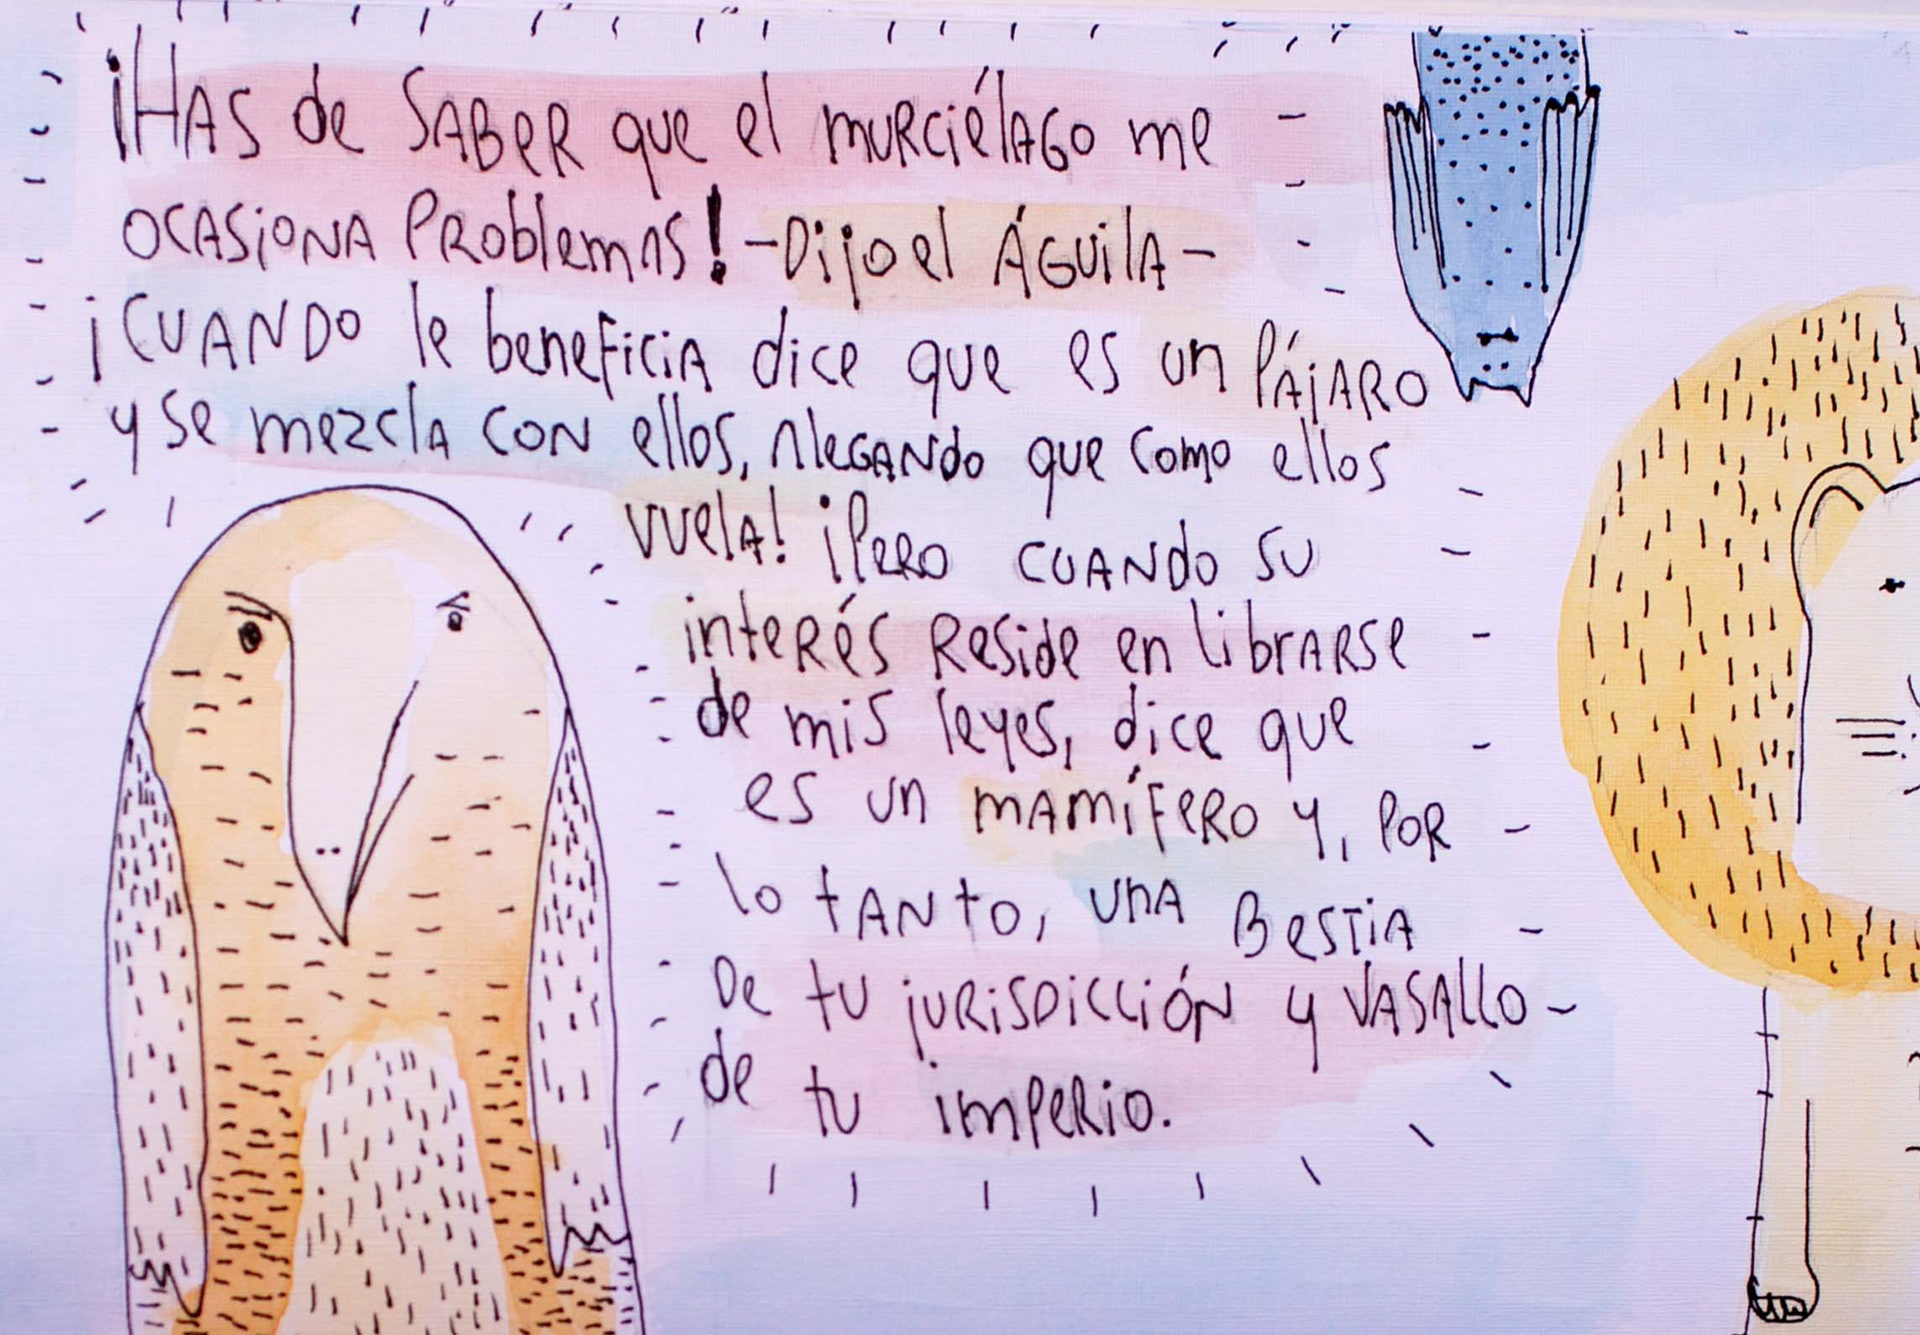 ¡HAS de SABeR que el murciélAGO me
OCASiONA PRoblemAS! -Dijo el ÁGUilA-
¡CUANDO le beneFiciA dice que es un PÁjARO
y se mezclA CON ellos, AleGANdo que como ellos
vuelA! ¡PeRO CUANdo su
inteRés Reside en librARse
de mis leyes, dice que
es un mAmíFeRO y, POR
lo tANto, unA BesTiA
De tu juRiSDicción y VASAllo
de tu imPeRio.